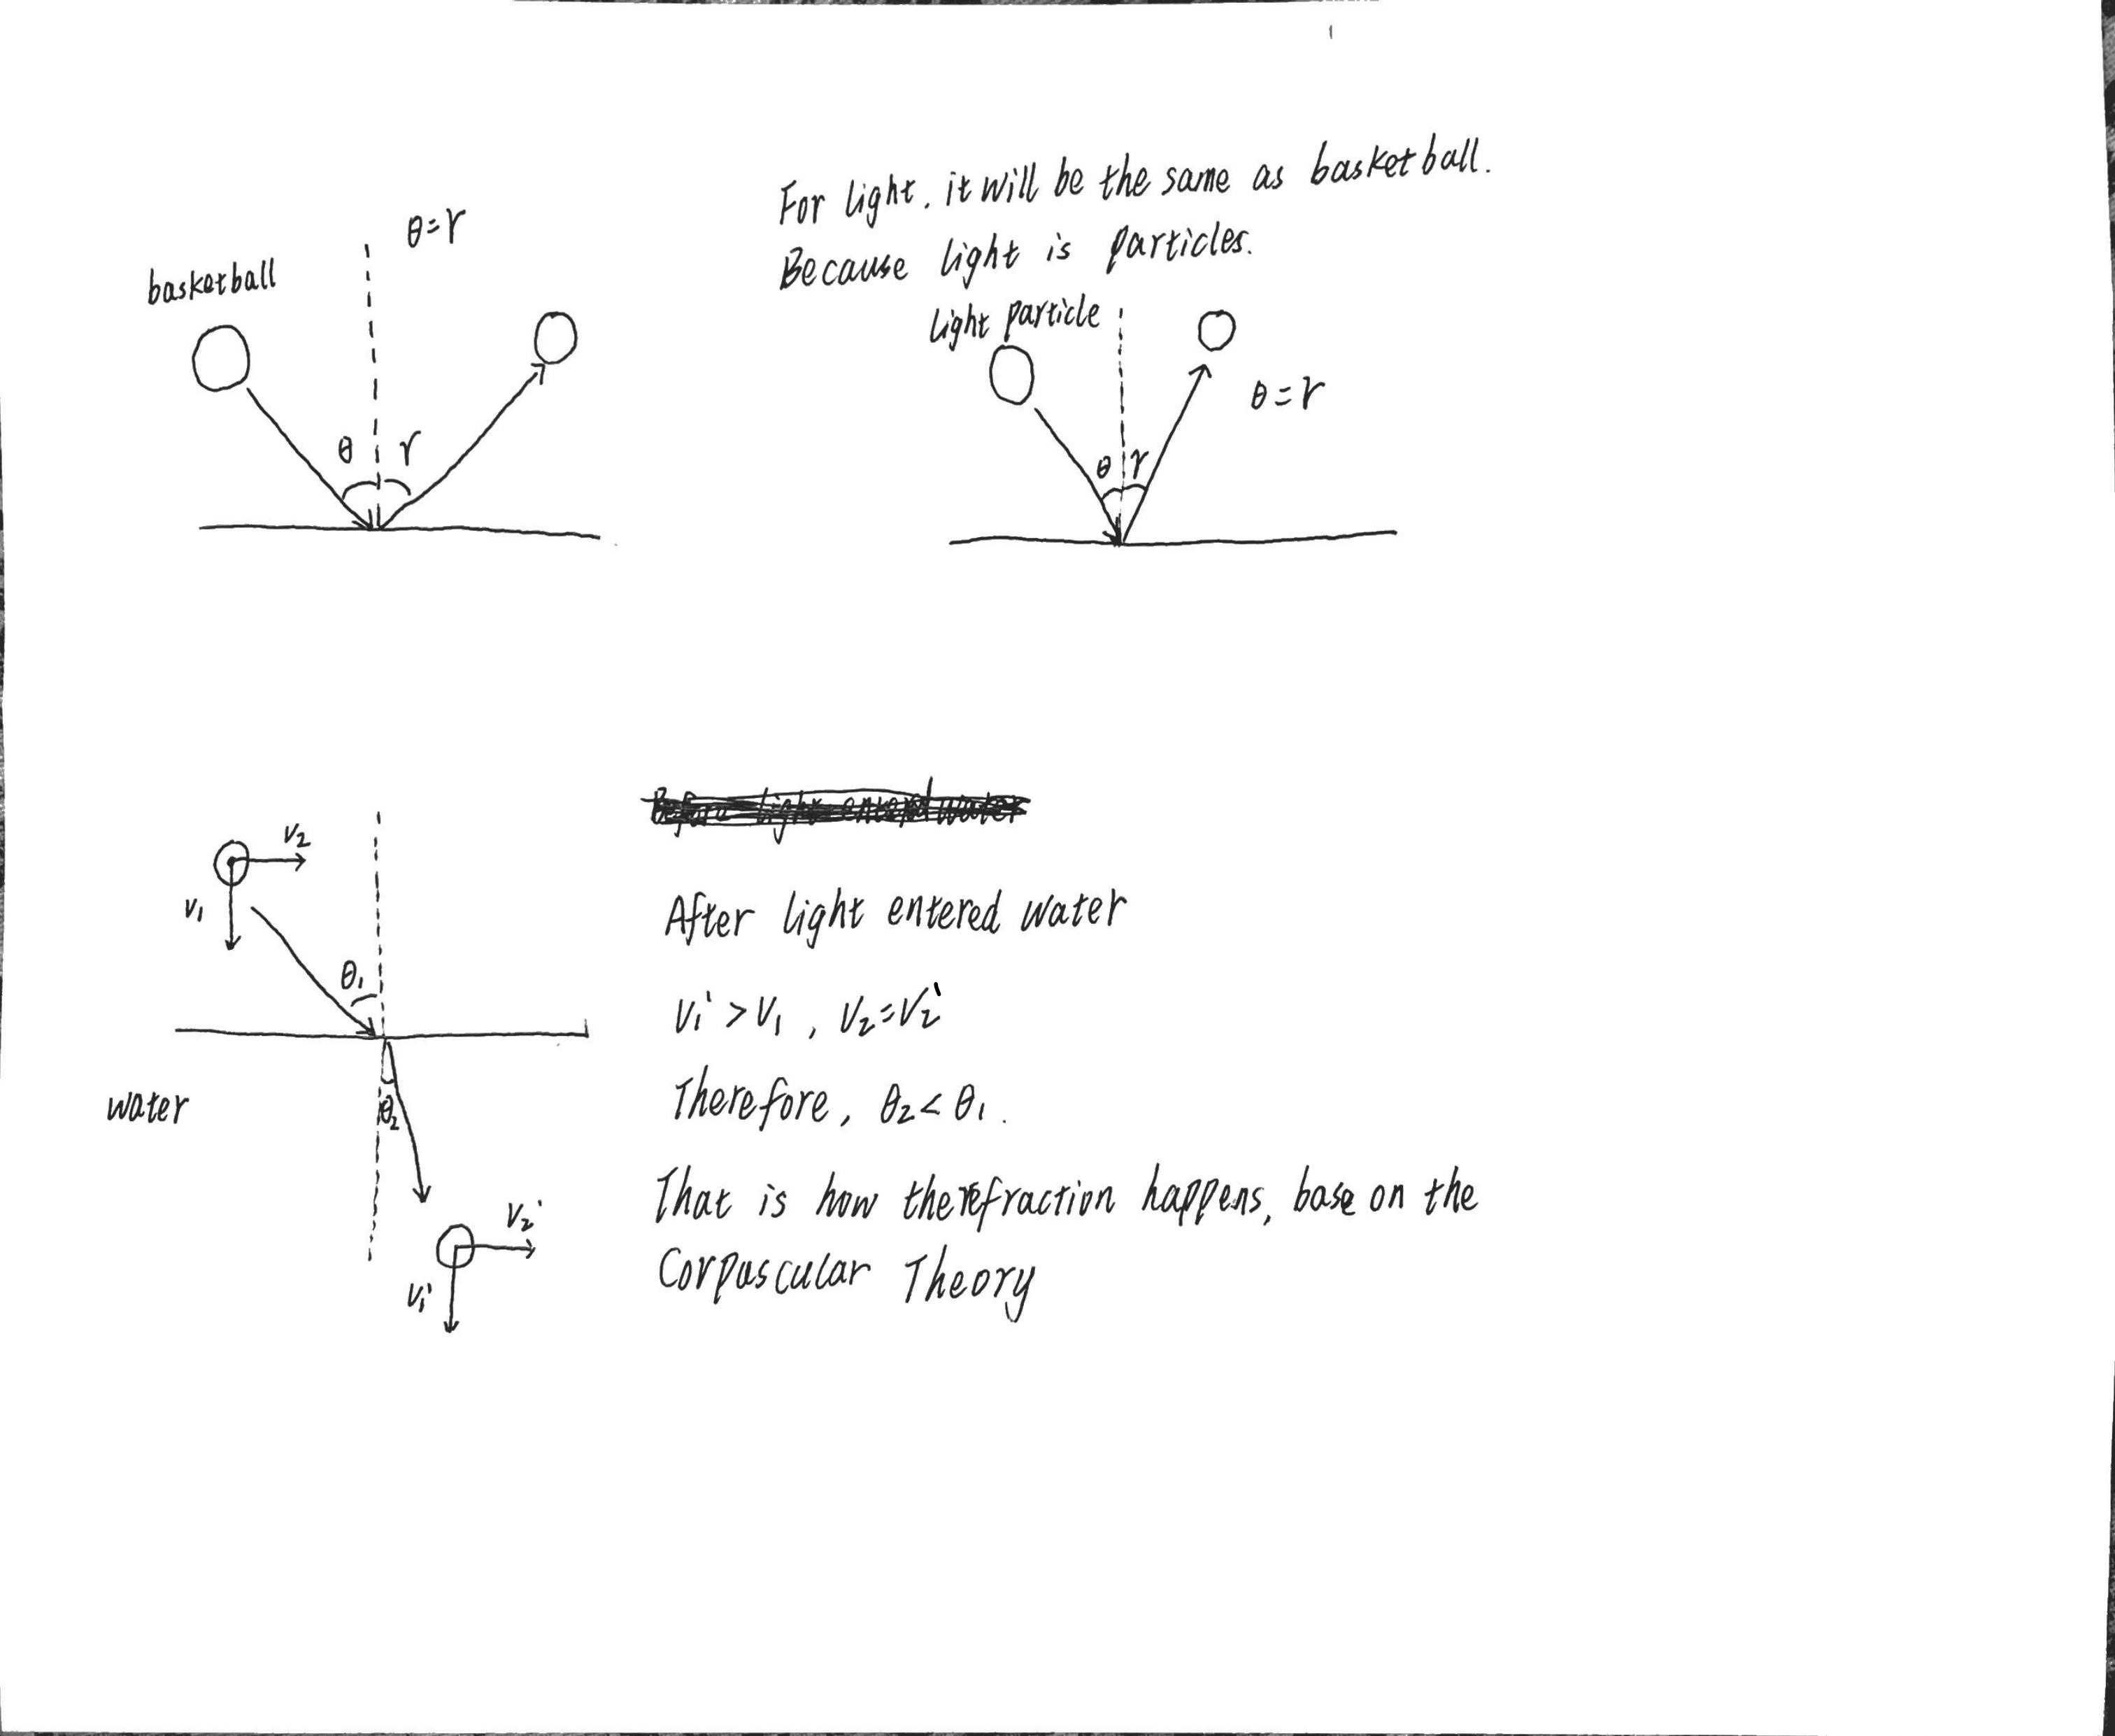 θ=r
basketball
θ r
For light, it will be the same as basketball.
Because light is particles.
light particle
θ=r
θ r
V₂
V₁
θ₁
water
θ₂
V₂'
V₁'
After light entered water
V₁' > V₁ , V₂=V₂'
Therefore, θ₂< θ₁ .
That is how the refraction happens, base on the
Corpuscular Theory